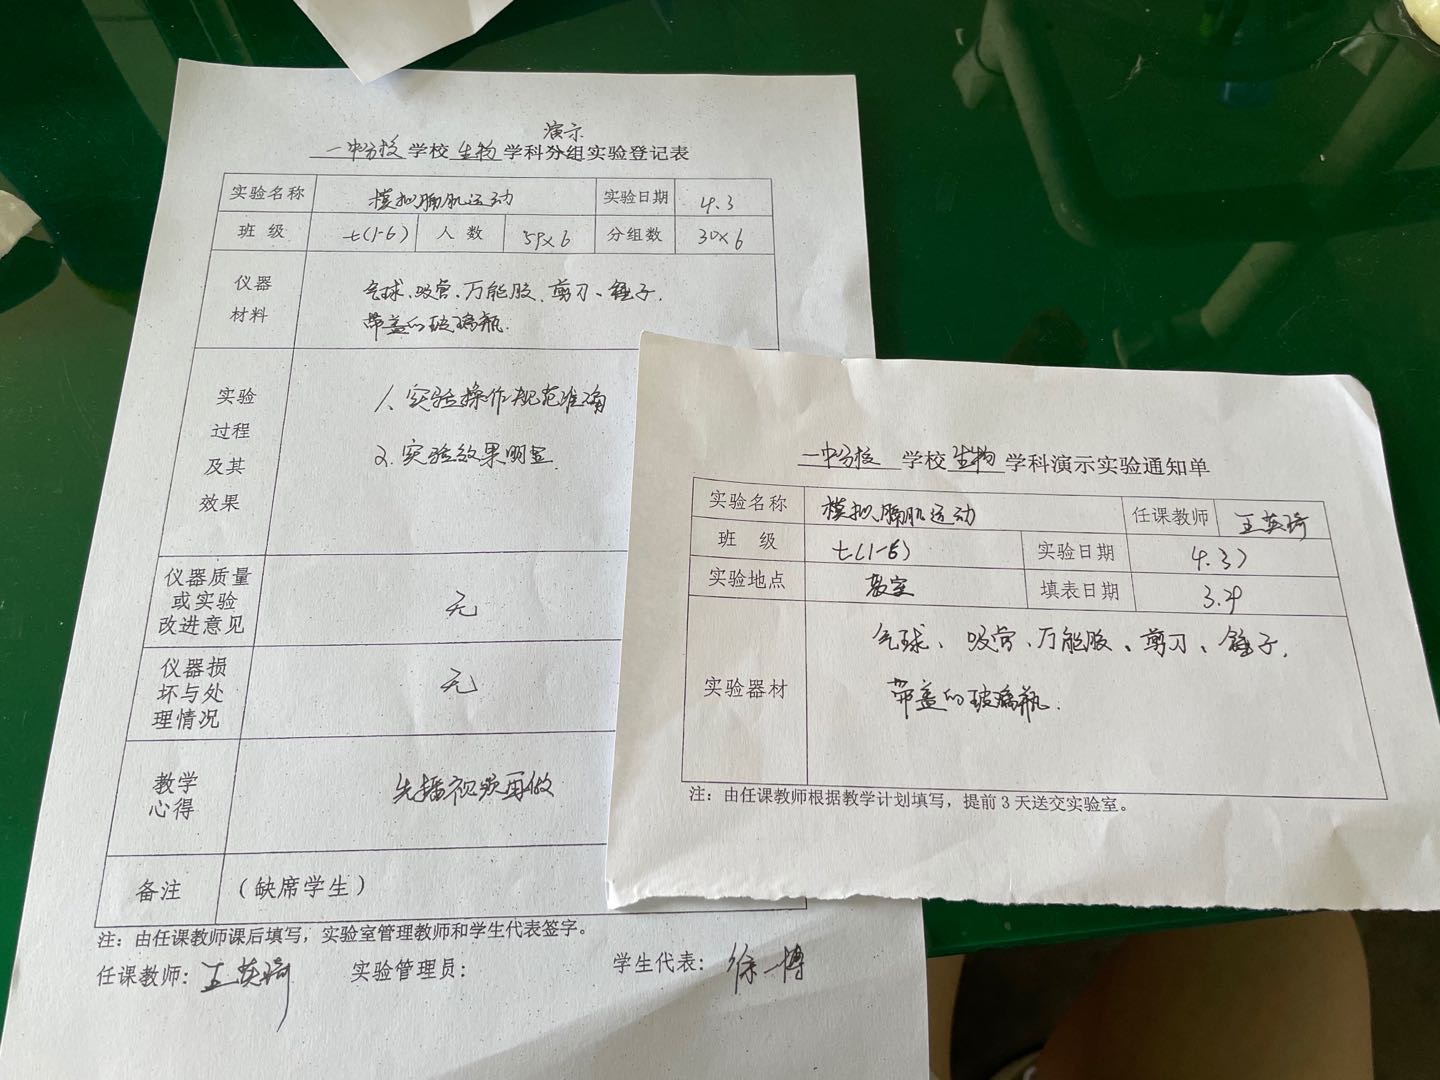 演示
一中分校学校生物学科分组实验登记表
实验名称 模拟膈肌运动 实验日期 4.3
班 级 七(1-6) 人 数 59×6 分组数 30×6
仪器材料 气球、吸管、万能胶、剪刀、锤子、
带盖的玻璃瓶.
实验过程及其效果 1、实验操作规范准确
2.实验效果明显
仪器质量或实验改进意见 无
仪器损坏与处理情况 无
教学心得 先播视频再做
备注 （缺席学生）
注：由任课教师课后填写，实验室管理教师和学生代表签字。
任课教师：王英琦 实验管理员： 学生代表：徐一博
一中分校 学校生物学科演示实验通知单
实验名称 模拟膈肌运动 任课教师 王英琦
班 级 七(1-6) 实验日期 4.3)
实验地点 教室 填表日期
实验器材 气球、吸管、万能胶、剪刀、锤子,
带盖的玻璃瓶.
注：由任课教师根据教学计划填写，提前3天送交实验室。